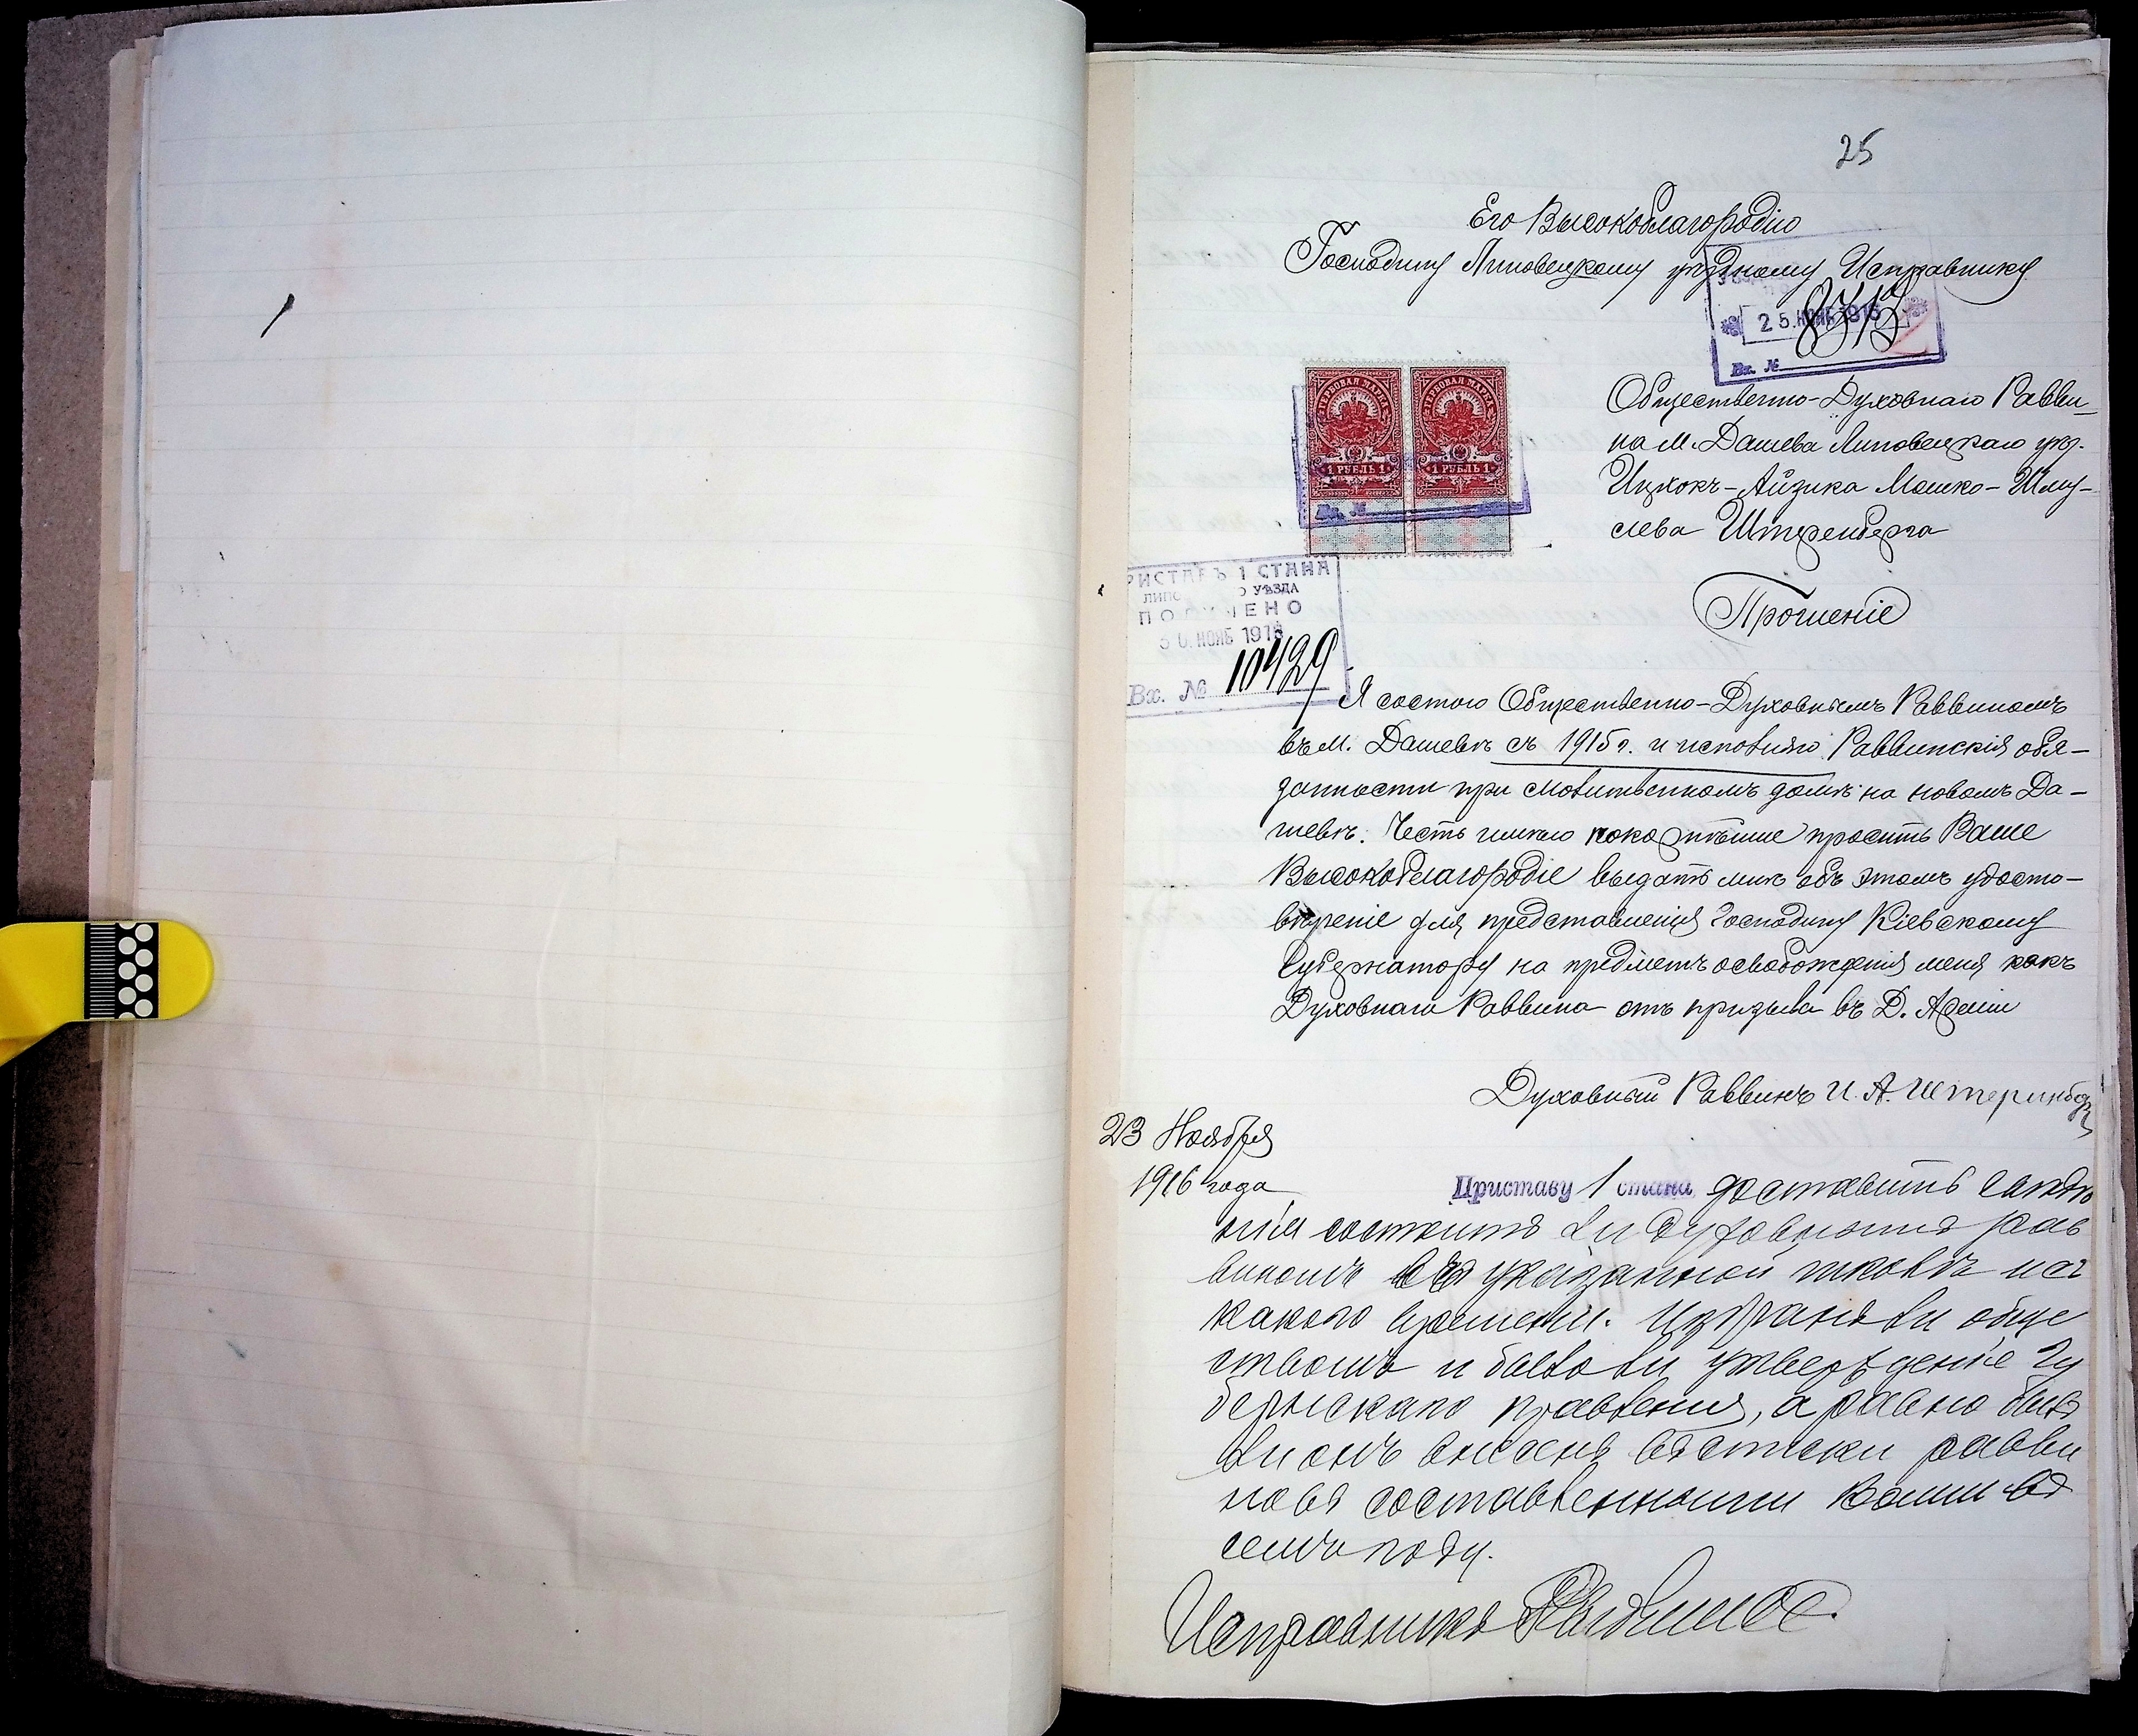 25
Его Высокоблагородію
Господину Липовецкому уѣздному Исправнику
25. НОЯБ 1916
8712
Вх. №
ГЕРБОВАЯ МАРКА ГЕРБОВАЯ МАРКА
1 РУБЛЬ 1 1 РУБЛЬ 1
Вх. №
Общественно-Духовнаго Равви-
на м. Дашева Липовецкаго уѣз.
Ицхокъ-Айзика Мошко-Шму-
лева Штеренберга
Прошеніе
РИСТАВЪ 1 СТАНА
ЛИПО О УѢЗДА
ПОЛУЧЕНО
30. НОЯБ 1916
Вх. № 10429
Я состою Общественно-Духовнымъ Раввиномъ
въ м. Дашевѣ съ 1915 г. и исполняю Раввинскія обя-
занности при молитвенномъ домѣ на новомъ Да-
шевѣ. Честь имѣю покорнѣйше просить Ваше
Высокоблагородіе выдать мнѣ объ этомъ удосто-
вѣреніе для представленія Господину Кіевскому
Губернатору на предметъ освобожденія меня какъ
Духовнаго Раввина отъ призыва въ Д. Арміи
Духовный Раввинъ И. А. Штеринберг
23 Ноября
1916 года
Приставу 1 стана доставить свѣдѣ
нія состоитъ ли духовнымъ рав
виномъ въ указанной школѣ и съ
какого времени. Избранъ ли обще
ствомъ и было ли утвержденіе Гу
бернскаго правленія, а равно былъ
ли онъ внесенъ въ списки равви
новъ составленными Вами въ
семъ году.
Исправникъ